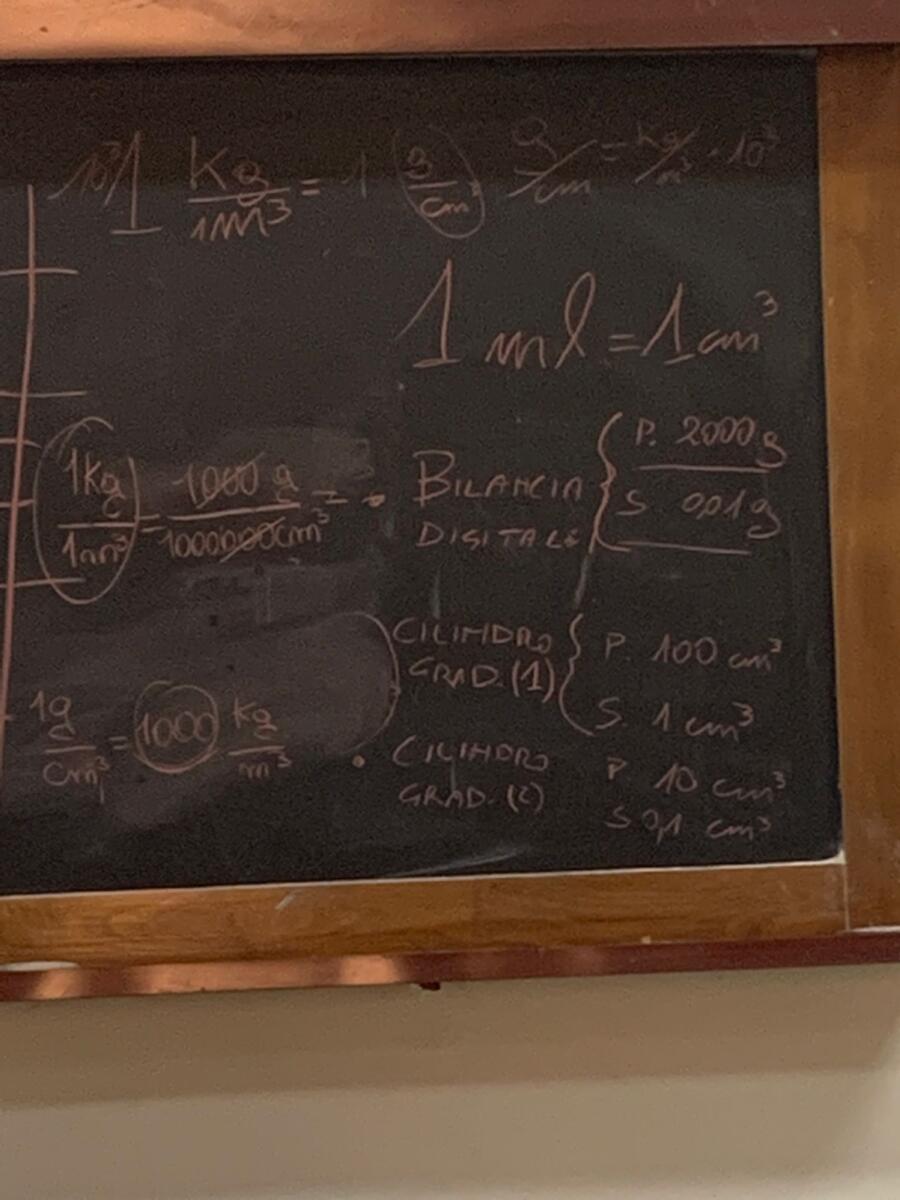 10³ 1 Kg/1m³ = 1 g/cm³ g/cm = Kg/m³ · 10³
1 ml = 1 cm³
1Kg/1m³ = 1000 g/1000000 cm³ =
• BILANCIA DIGITALE
P. 2000 g
S 0,01 g
CILINDRO GRAD. (1)
P. 100 cm³
S. 1 cm³
1g/cm³ = 1000 kg/m³
• CILINDRO GRAD. (2)
P. 10 cm³
S 0,1 cm³